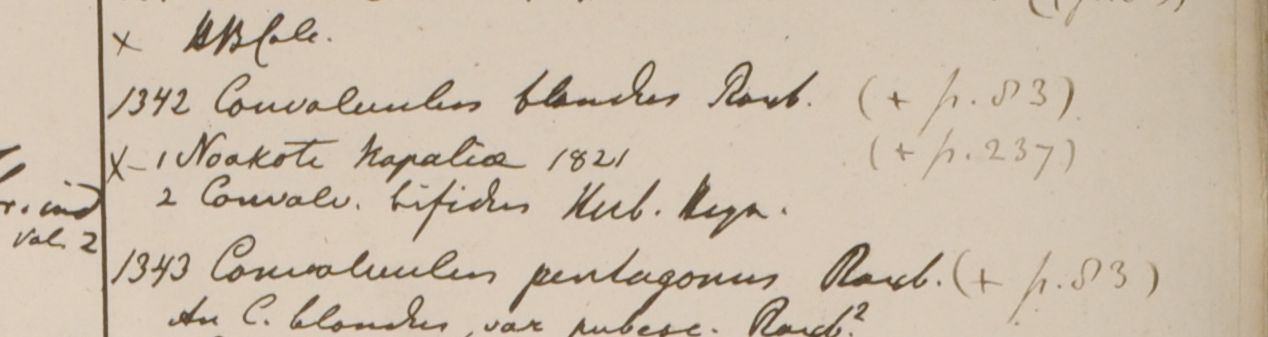 x HBC
1342 Convolvulus blandus Roxb. (+ p. 83)
X-1 Noakote Napaliæ 1821 (+ p. 237)
2 Convolv. bifidus Herb. Heyn.
Vol. 2
1343 Convolvulus pentagonus Roxb. (+ p. 83)
An C. blandus, var pubesc. Roxb.?